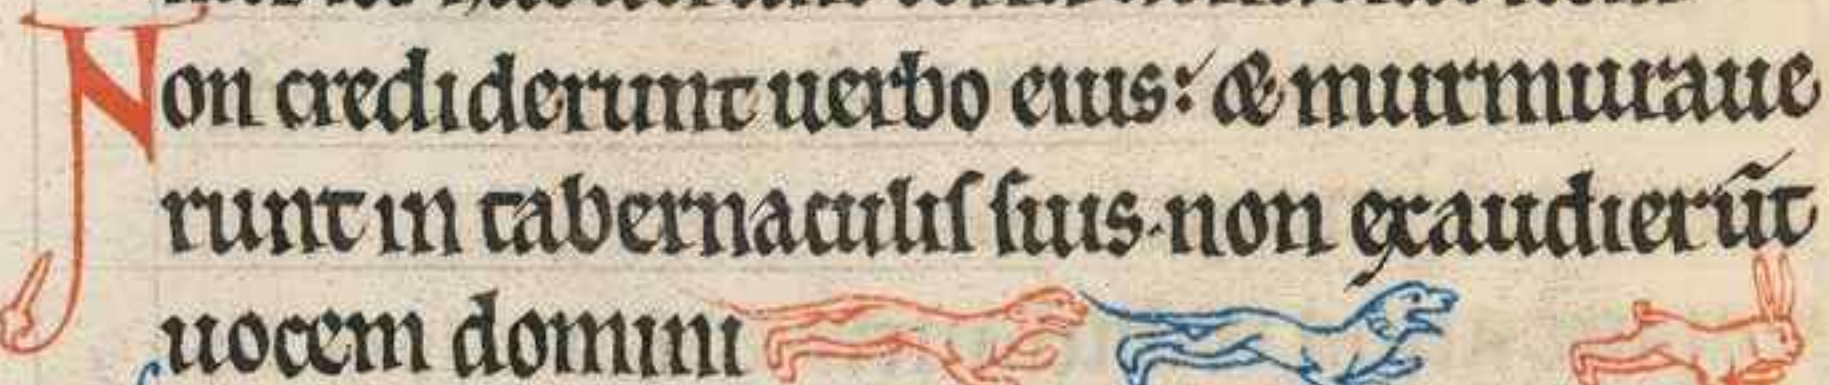 Non crediderunt uerbo eius: & murmuraue
runt in tabernaculiſ ſuis. non exaudierūt
uocem domini